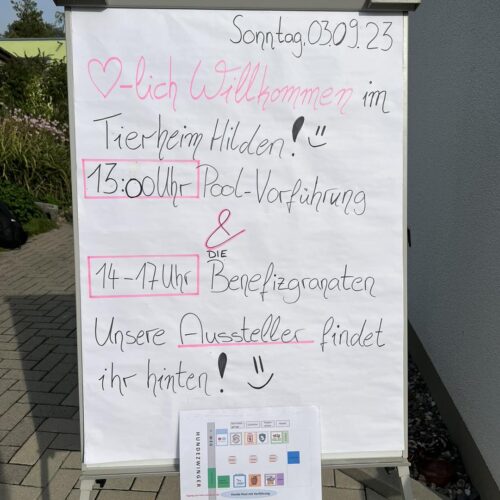 Sonntag, 03.09.23
♡-lich Willkommen im
Tierheim Hilden! ü
13:00 Uhr Pool-Vorführung
&
DIE
14-17 Uhr Benefizgranaten
Unsere Aussteller findet
ihr hinten! ü
HUNDEZWINGER